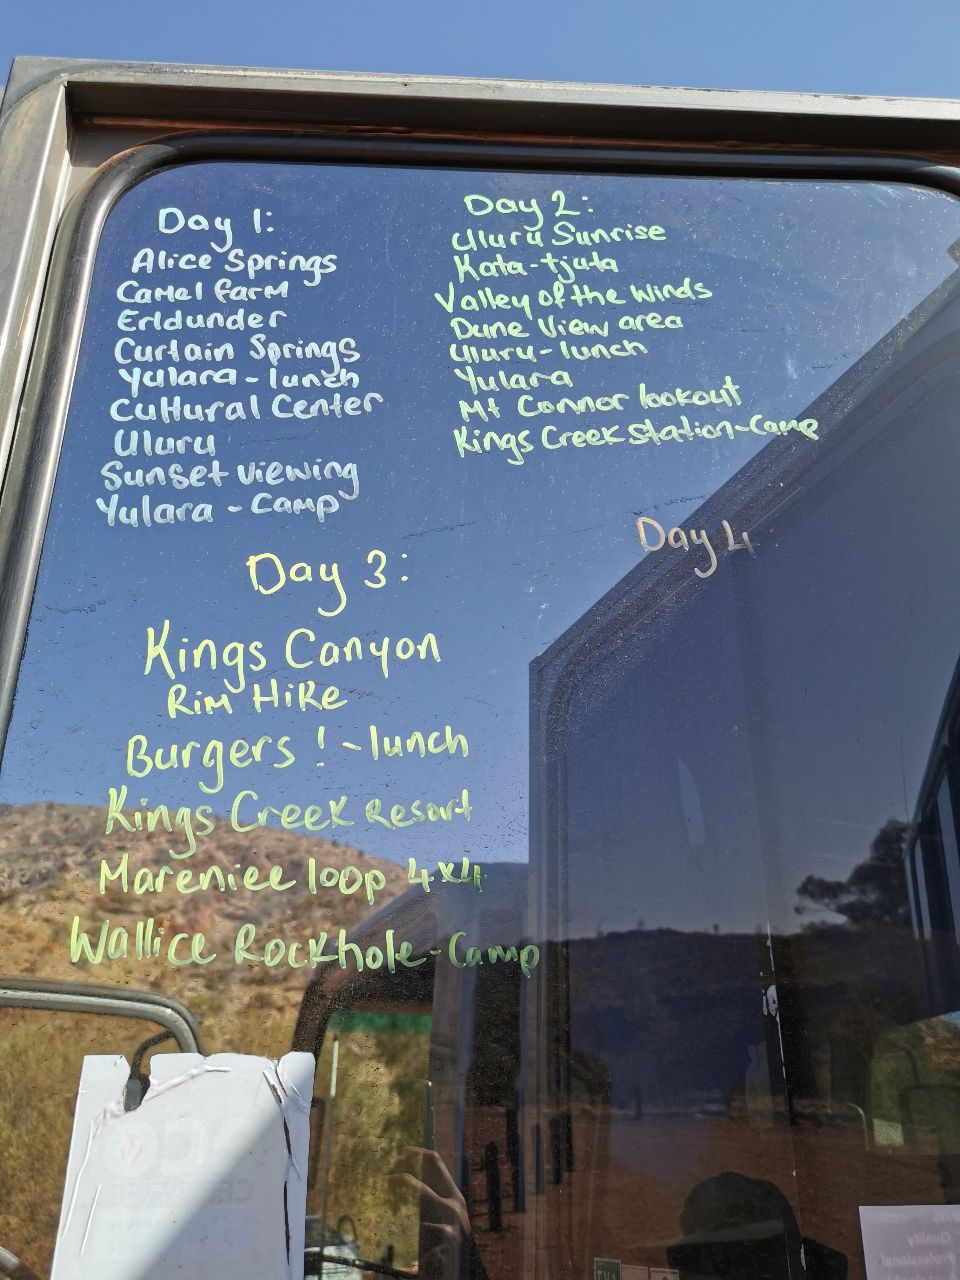 Day 1:
Alice Springs
Camel farm
Erldunder
Curtain Springs
Yulara - lunch
Cultural Center
Uluru
Sunset viewing
Yulara - Camp
Day 2:
Uluru Sunrise
Kata-tjuta
Valley of the Winds
Dune View area
Uluru - lunch
Yulara
Mt Connor lookout
Kings Creek Station-Camp
Day 3:
Kings Canyon
Rim Hike
Burgers ! - lunch
Kings Creek Resort
Mareniee loop 4x4
Wallice Rockhole-Camp
Day 4
Quality
Professional